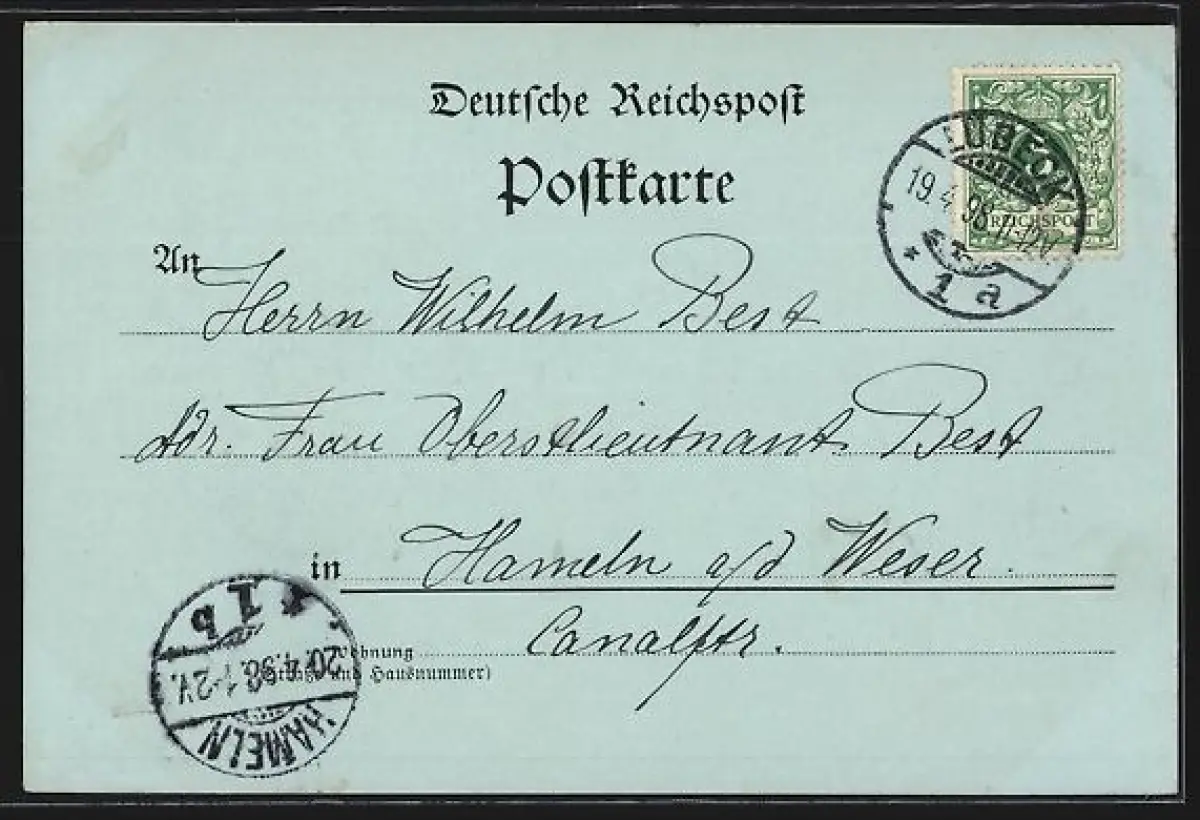 Deutsche Reichspost
Postkarte
LÜBECK
19.4.98.11-12V.
* 1 a
REICHSPOST
An Herrn Wilhelm Best
Adr. Frau Oberstlieutnant Best
in Hameln a/d Weser.
Canalstr.
Wohnung
(Straße und Hausnummer)
HAMELN
20.4.98.1-2V.
* 1 b